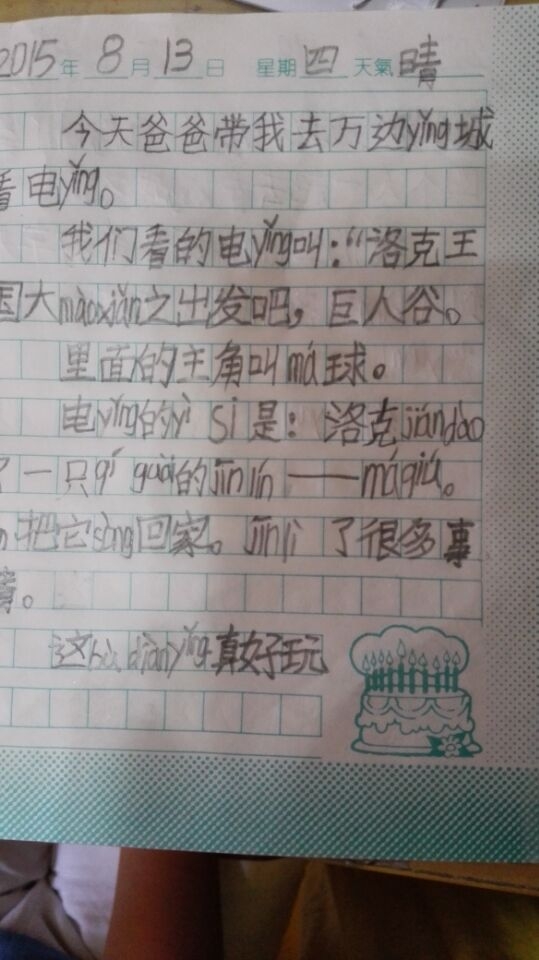 2015年 8月 13日 星期四 天氣晴
今天爸爸带我去万边yǐng城
看电yǐng。
我们看的电yǐng叫:“洛克王
国大màoxiǎn之出发吧,巨人谷。
里面的主角叫má球。
电yǐng的yì si是:洛克jiándào
了一只qí guài的jīnlín——máqiú。
把它sòng回家。jīnlì了很多事
情。
这bù diànyǐng真好玩